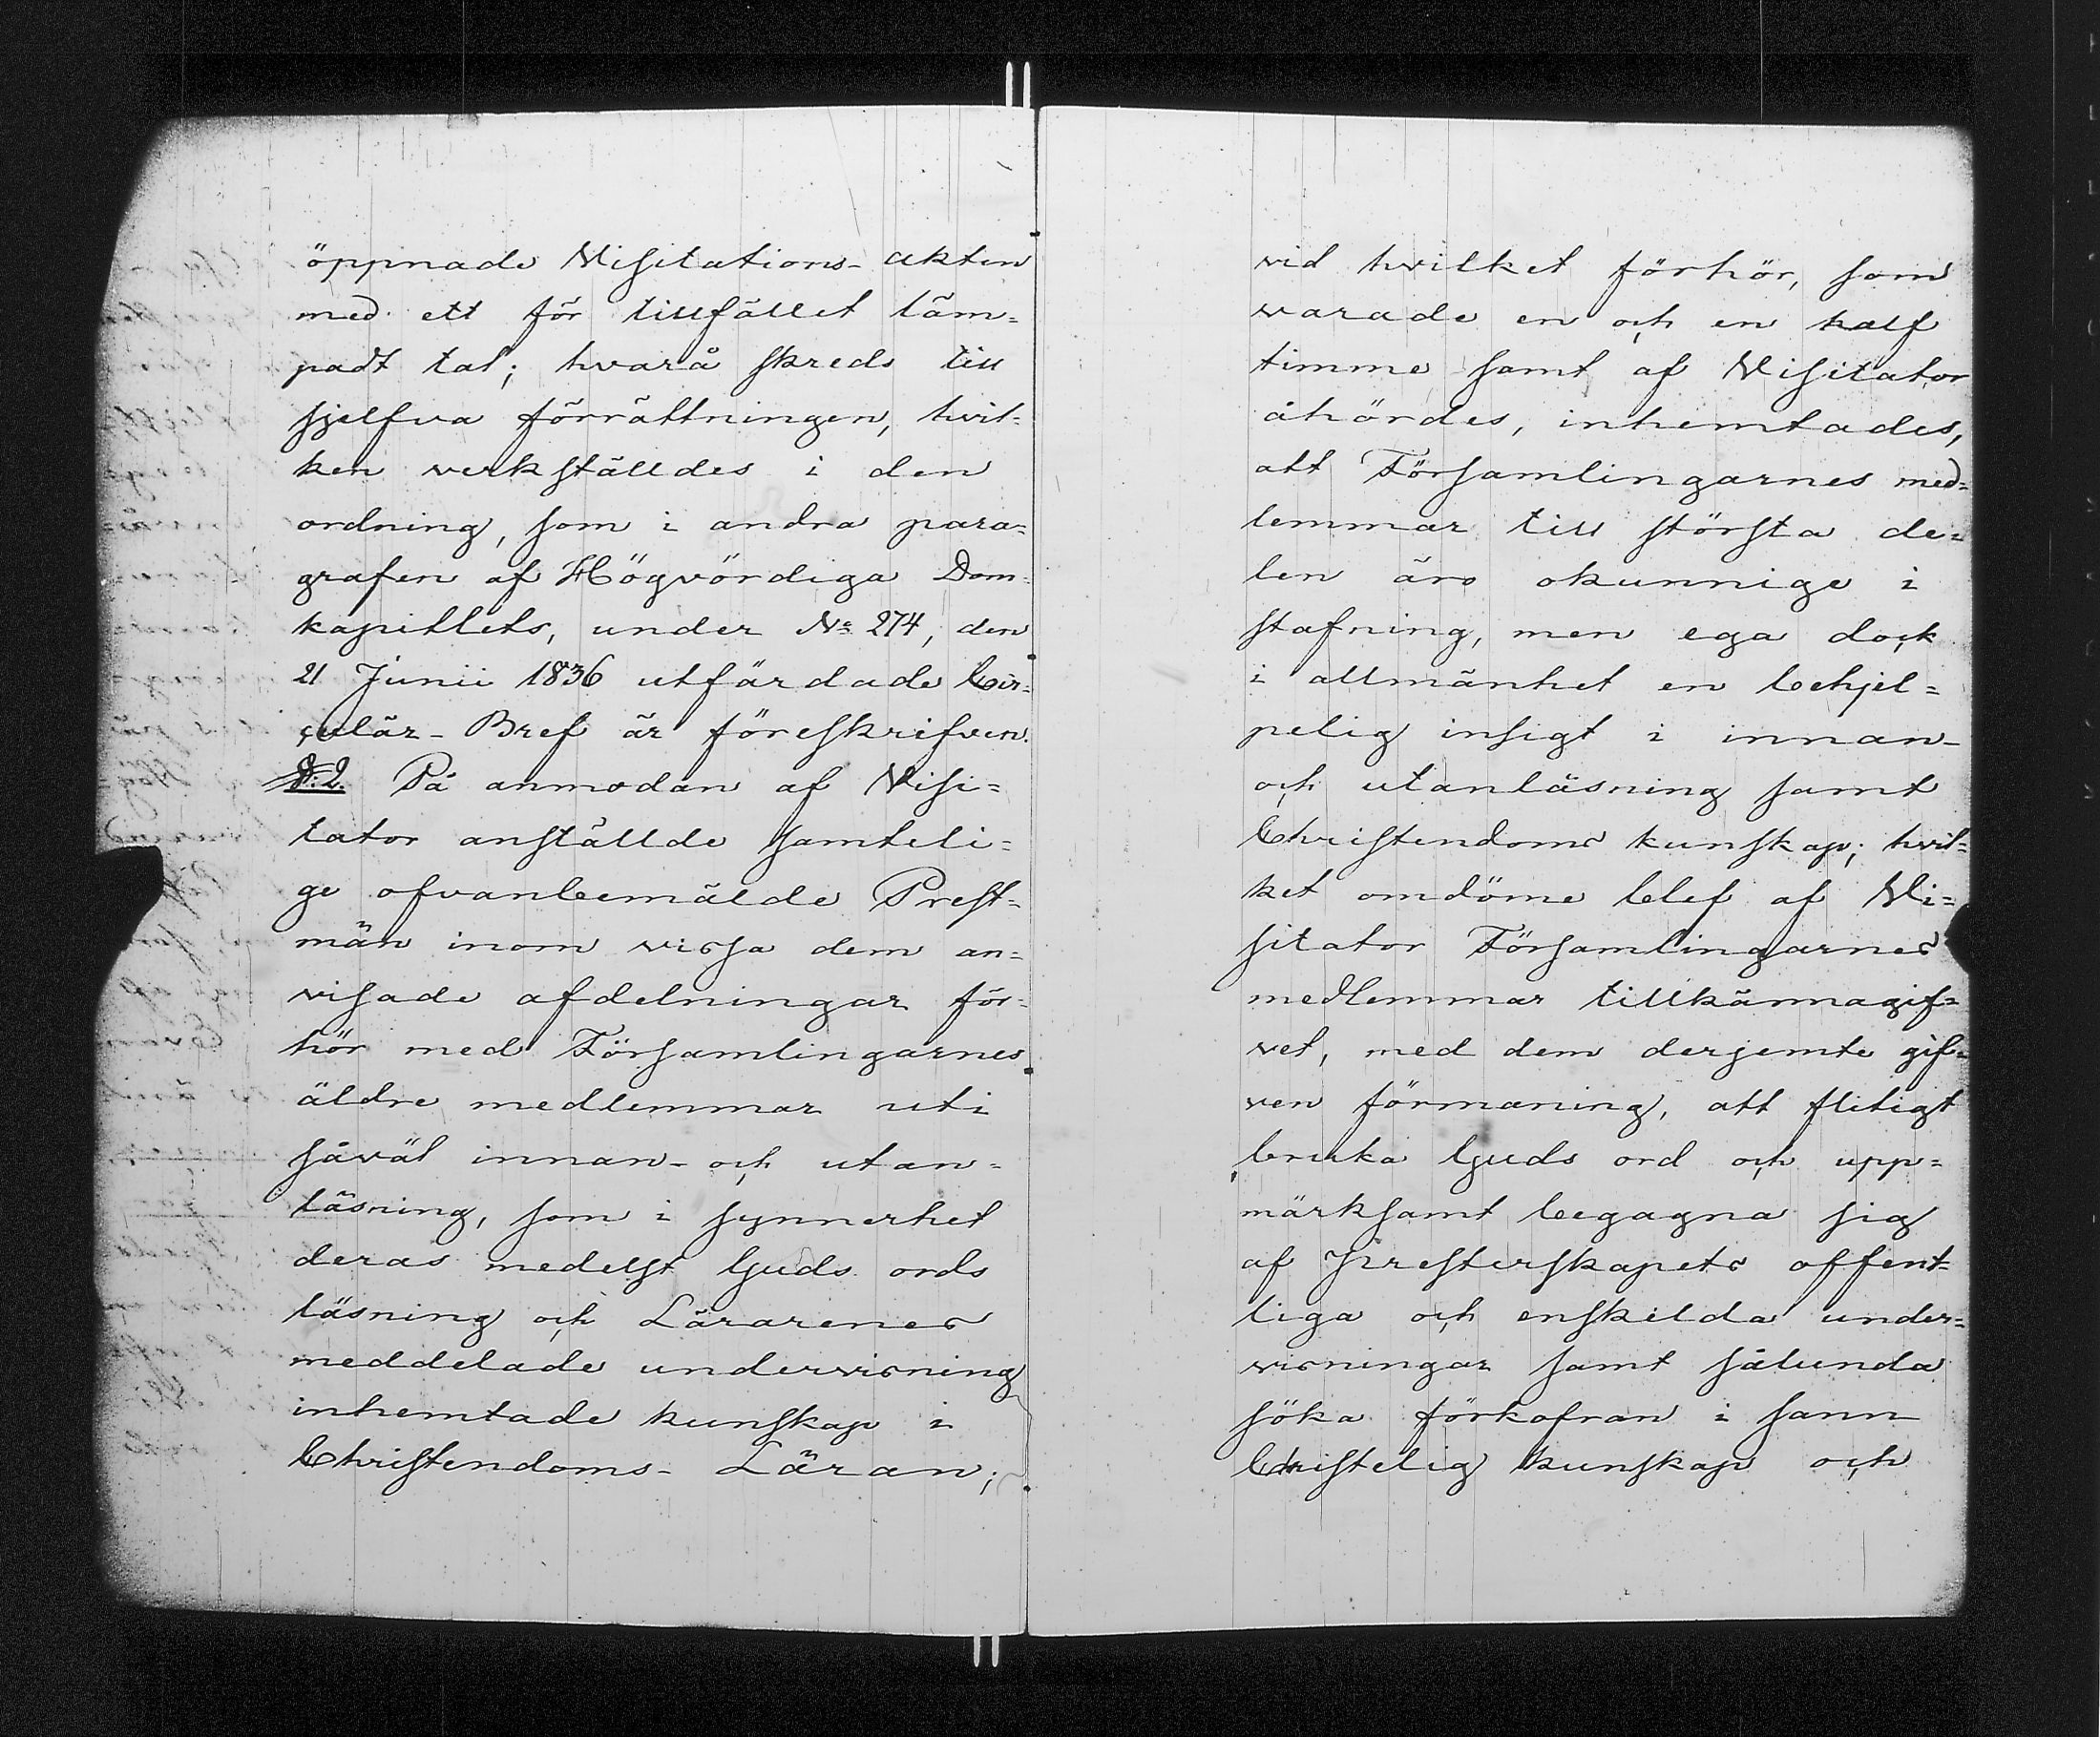 öppnade Visitations-akten
med ett för tillfället läm=
padt tal; hvarå skreds till
sjelfva förrättningen, hvil=
ken verkställdes i den
ordning, som i andra para=
grafen af Högvördiga Dom=
kapitlets, under No 274, den
21 Junii 1836 utfärdade Cir=
culär-Bref är föreskrifven.
§:2. På anmodan af Visi=
tator anställde samteli=
ge ofvanbemälde Prest=
män inom vissa dem an=
visade afdelningar för=
hör med Församlingarnes
äldre medlemmar uti
såväl innan- och utan=
läsning, som i synnerhet
deras medelst Guds ords
läsning och Lärarenes
meddelade undervisning
inhemtade kunskap i
Christendoms-Läran;
vid hvilket förhör, som
varade en och en half
timme samt af Visitator
åhördes, inhemtades,
att Församlingarnes med=
lemmar till största de=
len äro okunnige i
stafning, men ega dock
i allmänhet en behjel=
pelig insigt i innan-
och utanläsning samt
Christendoms kunskap; hvil=
ket omdöme blef af Vi=
sitator Församlingarnes
medlemmar tillkännagif=
vet, med dem derjemte gif=
ven förmaning, att flitigt
bruka Guds ord och upp=
märksamt begagna sig
af Presterskapets offent=
liga och enskilda under=
visningar samt sålunda
söka förkofran i sann
Christelig kunskap och